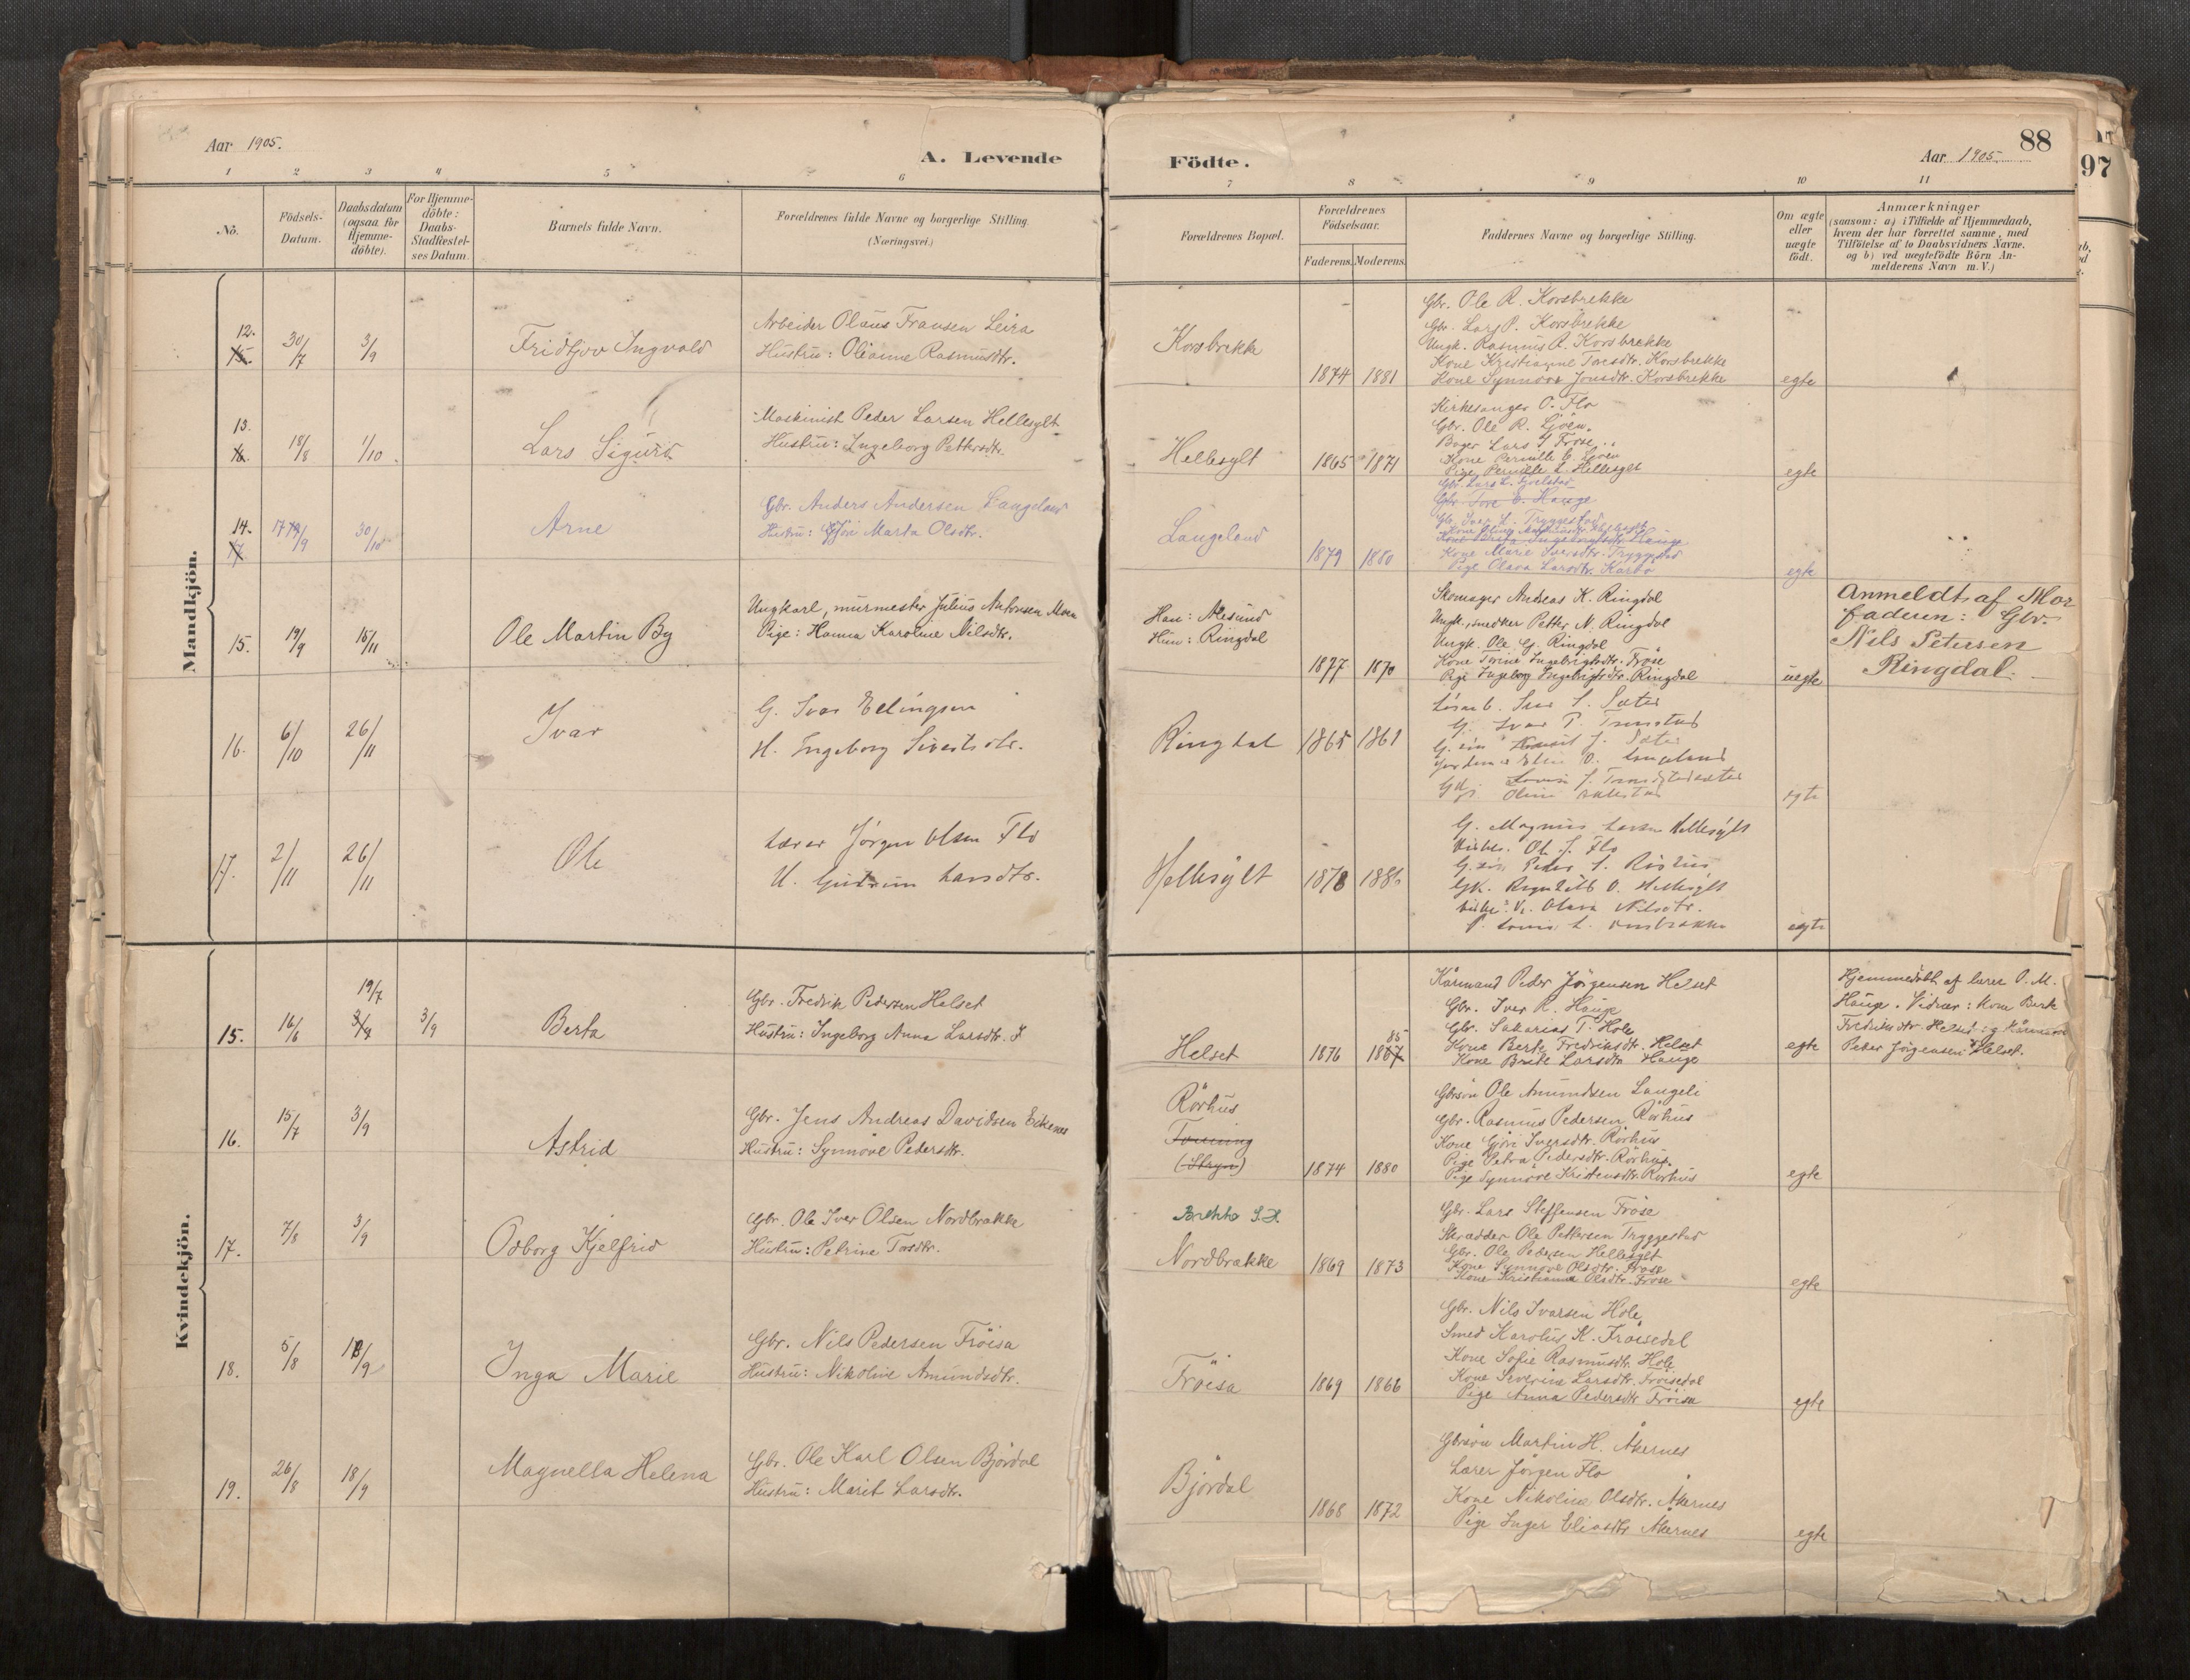 Aar 1905.
A. Levende
Födte.
Aar 1905.
88
97
1 2 3 4 5 6
7 8 9 10 11
No.
Födsels-Datum.
Daabsdatum (ogsaa for Hjemme-döbte).
For Hjemme-döbte: Daabs-Stadfæstel-ses Datum.
Barnets fulde Navn.
Forældrenes fulde Navne og borgerlige Stilling.
(Næringsvei.)
Forældrenes Bopæl.
Forældrenes Födselsaar.
Faderens. Moderens.
Faddernes Navne og borgerlige Stilling.
Om ægte eller uægte födt.
Anmærkninger
(saasom: a) i Tilfælde af Hjemmedaab,
hvem der har forrettet samme, med
Tilföielse af to Daabsvidners Navne.
og b) ved uægtefödte Börn An-
melderens Navn m. V.)
Mandkjön.
12.
15.
30/7
3/9
Fridtjov Ingvald
Arbeider Olaus Fransen Leira
Hustru: Olianne Rasmusdtr.
Korsbrekke
1874 1881
Gbr. Ole R. Korsbrekke
Gbr. Lars P. Korsbrekke
Ungk. Rasmus R. Korsbrekke
Kone Kristianne Toresdtr. Korsbrekke
Kone Synnöve Jonsdtr. Korsbrekke
egte
13.
16.
18/8
1/10
Lars Sigurd
Maskinist Peder Larsen Hellesylt
Hustru: Ingeborg Pettersdtr.
Hellesylt
1865 1871
Kirkesanger O. Flo
Gbr. Ole R. Ljöen.
Bager Lars G Fröse
Kone Pernille
Pige Pernille L. Hellesylt
egte
14.
17
17/9
30/10
Arne
Gbr. Anders Andersen Langeland
Hustru: Gjöri Marta Olsdtr.
Langeland
1879 1880
Gbr. Lars L.
Gbr. Tore E. Hauge
Gbr. Iver L. Tryggestad
Kone Marie Iversdtr. Tryggestad
Pige Olava Larsdtr. Karbö
egte
15.
19/9
15/11
Ole Martin By
Ungkarl, murmester Julius Antonsen Moen
Pige: Hanna Karoline Nilsdtr.
Han: Aalesund
Hun: Ringdal
1877 1870
Skomager Andreas K. Ringdal
Ungk., snedker Petter N. Ringdal
Ungk. Ole G. Ringdal
Kone Trine Ingebrigtsdtr. Fröse
Pige Ingeborg Ingebrigtsdtr. Ringdal
uegte
Anmeldt af Mor
faderen: Gbr.
Nils Petersen
Ringdal.
16.
6/10
26/11
Ivar
G. Ivar Ellingsen
H. Ingeborg Sivertsdtr.
Ringdal
1865 1861
G. Ivar P. Tronstad
egte
17.
2/11
26/11
Ole
Lærer Jörgen Olsen Flo
H. Gudrun Larsdtr.
Hellesylt
1878 1886
G. Magnus Larsen Hellesylt
Kirkes. Ole J. Flo
GK. Ragnhild O. Hellesylt
Olava Nilsdtr.
egte
Kvindekjön.
15.
16/6
19/7
3/9
3/9
Berta
Gbr. Fredrik Pedersen Helset
Hustru: Ingeborg Anna Larsdtr.
Helset
1876
85
1887
Kårmand Peder Jörgensen Helset
Gbr. Iver R. Hauge
Gbr. Sakarias T. Hole
Kone Berte Fredriksdtr. Helset
Kone Brite Larsdtr Hauge
egte
Hjemmedöbt af lærer O. M.
Hauge. Vidner: Kone Berte
Fredriksdtr. Helset og Kårmand
Peder Jörgensen Helset.
16.
15/7
3/9
Astrid
Gbr. Jens Andreas Davidsen Eikenes
Hustru: Synnöve Pedersdtr.
Rörhus
Tonning
(Stryn)
1874 1880
Gbrsön Ole Amundsen Langeli
Gbr. Rasmus Pedersen Rörhus
Kone Gjöri Iversdtr. Rörhus
Pige Petra Pedersdtr. Rörhus.
Pige Synnöve Kristensdtr. Rörhus
egte
17.
7/8
3/9
Odborg Kjelfrid
Gbr. Ole Iver Olsen Nordbrække
Hustru: Petrine Toresdtr.
Nordbrække
1869 1873
Gbr. Lars Steffensen Fröse
Skrædder Ole Pettersen Tryggestad
Gbr. Ole Pedersen Hellesylt
Kone Synnöve Olsdtr. Fröse
Kone Kristianna Olsdtr. Fröse
egte
18.
5/8
18/9
Inga Marie
Gbr. Nils Pedersen Fröisa
Hustru: Nikoline Amundsdtr.
Fröisa
1869 1866
Gbr. Nils Ivarsen Hole
Smed Karolus K. Fröisedal
Kone Sofie Rasmusdtr. Hole
Kone Severine Larsdtr. Fröisedal
Pige Anna Pedersdtr Fröisa
egte
19.
26/8
18/9
Magnella Helena
Gbr. Ole Karl Olsen Björdal
Hustru: Marit Larsdtr.
Björdal
1868 1872
Gbrsön Martin H. Åkernes
Lærer Jörgen Flo
Kone Nikoline Olsdtr. Åkernes
Pige Inger Eliasdtr Åkernes
egte